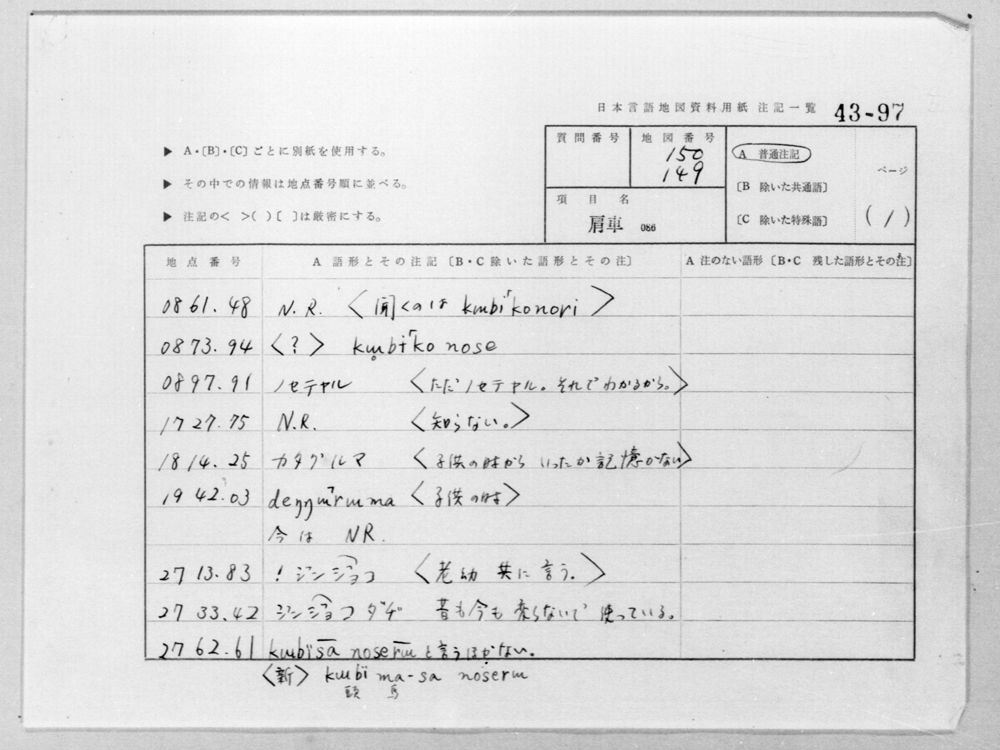 日本言語地図資料用紙 注記一覧 43-97
▶ A・〔B〕・〔C〕ごとに別紙を使用する。
▶ その中での情報は地点番号順に並べる。
▶ 注記の< >( )〔 〕は厳密にする。
質問番号 地図番号
150
149
項目名
肩車 086
A 普通注記
〔B 除いた共通語〕
〔C 除いた特殊語〕
ページ
(1)
地点番号 A 語形とその注記〔B・C 除いた語形とその注〕 A 注のない語形〔B・C 残した語形とその注〕
0861.48 N.R. 〈聞くのは kɯbiꜛkonori〉
0873.94 〈?〉 kɯ̥bïꜛko nose
0897.91 ノセテヤル 〈ただノセテヤル。それでわかるから。〉
1727.75 N.R. 〈知らない。〉
1814.25 カタグルマ 〈子供の時から いったか記憶がない〉
1942.03 deŋŋɯꜛrɯma 〈子供の時〉
今は NR.
2713.83 ! ジンジョコ 〈老幼 共に言う。〉
2733.42 ジンジョコダヂ 昔も今も 変らないで 使っている。
2762.61 kɯbïsa noserɯと言うほかない。
〈新〉 kɯbï ma-sa noserɯ
頸 馬